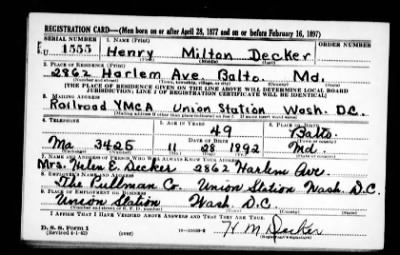 REGISTRATION CARD—(Men born on or after April 28, 1877 and on or before February 16, 1897)
SERIAL NUMBER 1. NAME (Print) ORDER NUMBER
U 1555 Henry Milton Decker
(First) (Middle) (Last)
2. PLACE OF RESIDENCE (Print)
2862 Harlem Ave. Balto. Md.
(Number and street) (Town, township, village, or city) (County) (State)
[THE PLACE OF RESIDENCE GIVEN ON THE LINE ABOVE WILL DETERMINE LOCAL BOARD
JURISDICTION; LINE 2 OF REGISTRATION CERTIFICATE WILL BE IDENTICAL]
3. MAILING ADDRESS
Railroad YMCA Union Station Wash. D.C.
[Mailing address if other than place indicated on line 2. If same insert word same]
4. TELEPHONE 5. AGE IN YEARS 6. PLACE OF BIRTH
49 Balto.
DATE OF BIRTH (Town or county)
Ma. 3425 11 28 1892 Md.
(Exchange) (Number) (Mo.) (Day) (Yr.) (State or country)
7. NAME AND ADDRESS OF PERSON WHO WILL ALWAYS KNOW YOUR ADDRESS
Mrs. Helen E. Decker 2862 Harlem Ave.
8. EMPLOYER'S NAME AND ADDRESS
The Pullman Co. Union Station Wash. D.C.
9. PLACE OF EMPLOYMENT OR BUSINESS
Union Station Wash. D.C.
(Number and street or R. F. D. number) (Town) (County) (State)
I AFFIRM THAT I HAVE VERIFIED ABOVE ANSWERS AND THAT THEY ARE TRUE.
D. S. S. Form 1
(Revised 4-1-42) (over) H M Decker
(Registrant's signature)